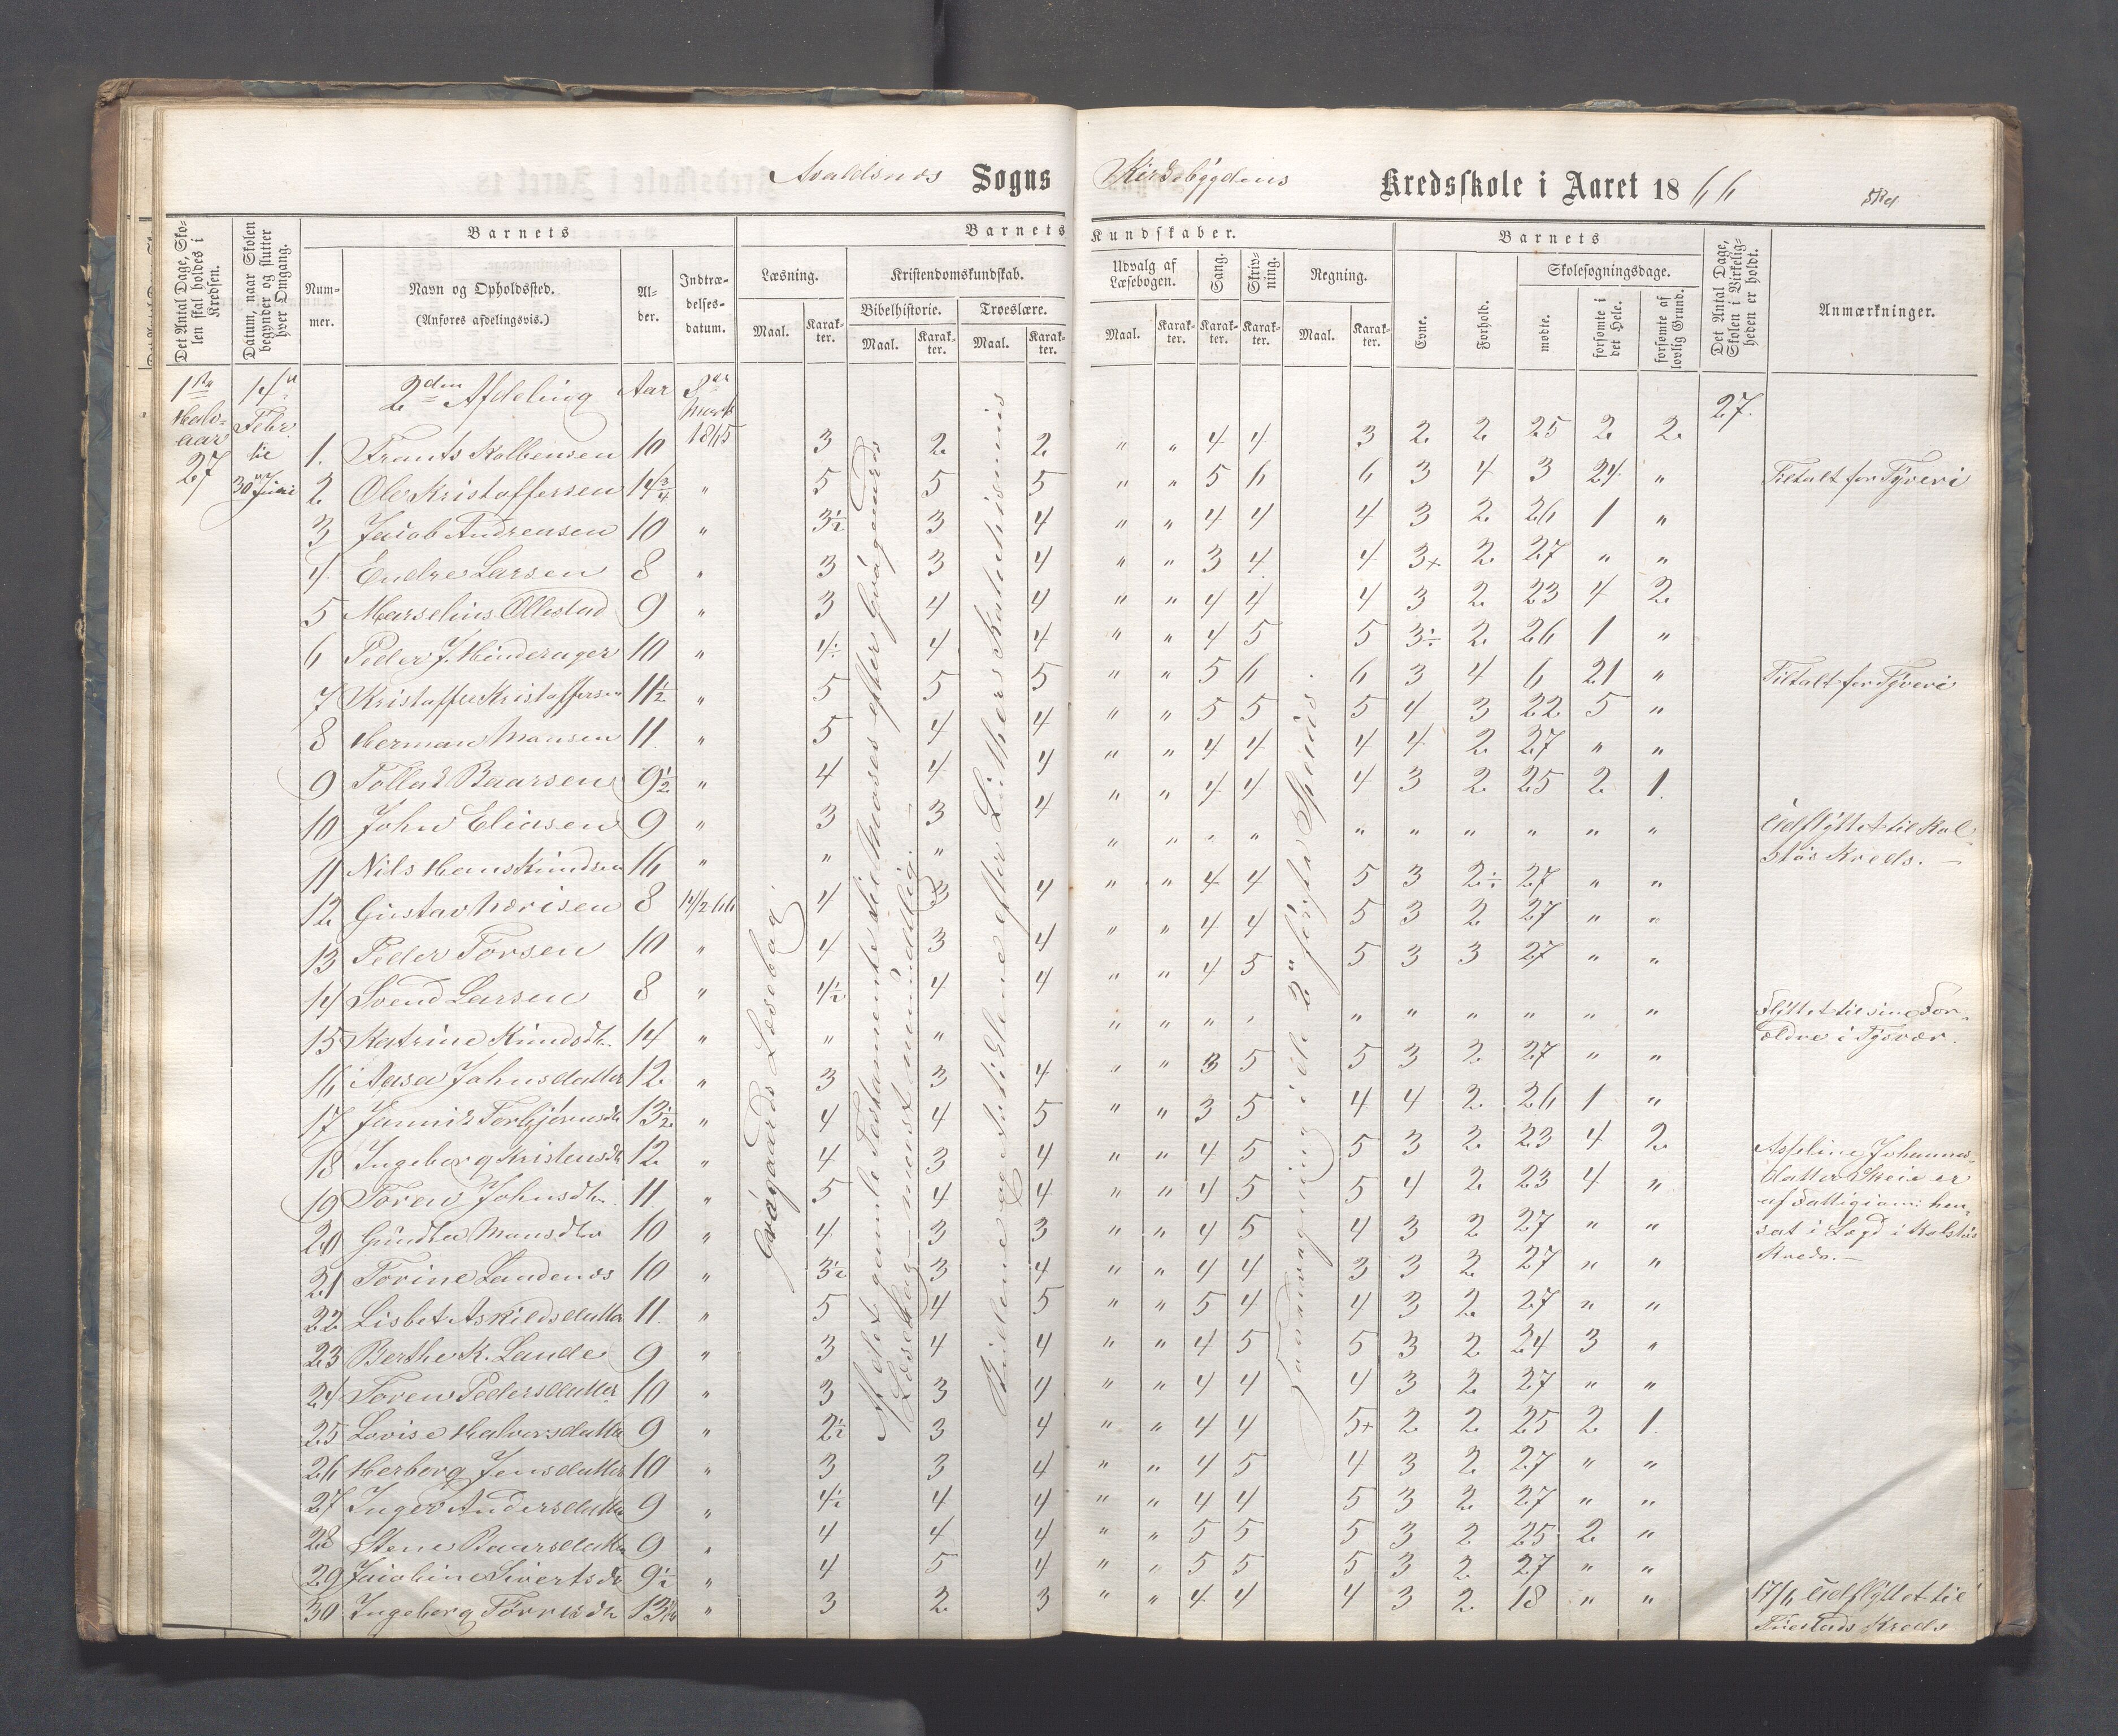 Avaldsnes Sogns Kirkebygdens Kredsskole i Aaret 1866
Det Antal Dage, Sko-
len skal holdes i
Kredsen.
Datum, naar Skolen
begynder og slutter
hver Omgang.
Barnets
Num-
mer.
Navn og Opholdssted.
(Anføres afdelingsvis.)
Al-
der.
Indtræ-
delses-
datum.
Barnets Kundskaber.
Læsning.
Maal.
Karak-
ter.
Kristendomskundskab.
Bibelhistorie.
Maal.
Karak-
ter.
Troeslære.
Maal.
Karak-
ter.
Udvalg af
Læsebogen.
Maal.
Karak-
ter.
Sang.
Karak-
ter.
Skriv-
ning.
Karak-
ter.
Regning.
Maal.
Karak-
ter.
Barnets
Evne.
Forhold.
Skolesøgningsdage.
mødte.
forsømte i
det Hele.
forsømte af
lovlig Grund.
Det Antal Dage,
Skolen i Virkelig-
heden er holdt.
Anmærkninger.
1ste
Halv-
aar
27
14de
Febr.
til
30te Juni
2den Afdeling Aar
Marts
1865
27.
1. Frants Kolbensen 10 3 2 2 " " 4 4 3 2 2 25 2 2
2 Ole Kristoffersen 14 3/4 " 5 5 5 " " 5 6 6 3 4 3 24 " Tiltalt for Tyveri
3 Jacob Andreasen 10 " 3½ 3 4 " " 4 4 4 3 2 26 1 "
4. Endre Larsen 8 " 3 3 4 " " 3 4 4 3+ 2 27 " "
5 Marselius Ollestad 9 " 3 4 4 " " 4 4 4 3 2 23 4 2
6 Peder J. Hinderager 10 " 4÷ 4 4 " " 4 5 5 3÷ 2 26 1 "
7 Kristoffer Kristoffersen 11½ " 5 5 5 " " 5 6 6 3 4 6 21 " Tiltalt for Tyveri
8 Herman Monsen 11 " 5 4 4 " " 5 5 5 4 3 22 5 "
9 Tollak Baarsen 9½ " 4 4 4 " " 4 4 4 4 2 27 " "
10 John Eliasen 9 " 3 3 4 " " 4 4 4 3 2 25 2 1.
11 Nils Hans Knudsen 16 " " " " " " " " " " " " " Udflyttet til Kol-
støs Kreds. —
12 Gustav 8 14/2 66 4 3 4 " " 4 4 5 3 2÷ 27 " "
13 Peder Torsen 10 " 4 3 4 " " 4 4 5 3 2 27 " "
14 Svend Larsen 8 " 4½ 4 4 " " 4 5 5 3 3 27 " "
15 Katrine Knudsdtr. 14 " " " " " " " " " " " " " Flyttet til sine For-
ældre i Tysvær.
16 Aasa Johnsdatter 12. " 3 3 4 " " 3 5 5 3 2 27 " "
17 Torbjørnsdtr 13½ " 4 4 5 " " 3 5 4 4 2 26 1 "
18 Ingeborg Kristensdtr 12 " 4 3 4 " " 4 5 5 3 2 23 4 2
19 Toren Johnsdtr. 11 " 5 4 4 " " 4 5 5 4 2 23 4 "
20 Gundla Monsdtr 10 " 4 3 3 " " 4 5 4 3 2 27 " "
21 Torine Landenes 10 " 3½ 3 4 " " 4 4 3 3 2 27 " "
22 Lisbet Askildsdatter 11. " 5 4 5 " " 5 4 4 3 2 27 " "
23 Berthe K. Lande 9 " 3 4 4 " " 4 5 5 3 2 24 3 "
24 Toren Pedersdatter 10 " 3 3 4 " " 4 4 4 3 2 27 " "
25 Lovise Halvorsdatter 9 " 2½ 3 4 " " 4 4 5+ 2 2 25 2 1.
26 Herborg Jensdatter 10 " 3 3 4 " " 4 5 4 3 2 27 " "
27 Inger Andersdatter 9 " 4½ 4 4 " " 4 4 5 3 2 27 " "
28 Stene Baarsdatter 9 " 4 4 4 " " 5 5 5 3 2 25 2 "
29 Jacobine Sivertsdtr 9½ " 4 5 4 " " 5 5 5 3 2 27 " "
30 Ingeborg Torrisdtr " 3 2 3 " " 4 4 4 3 2 18 " " 17/6 Udflyttet til
Kreds
Johannes-
datter Skeie er
af Fattigkom: hen-
sat i Lægd i Kolstøs
Kreds. —
Gvågaards Læsebog
Af det gamle Testamente til Moses efter Gvågaards
Læsebog – mest mundtlig. –
Budene og Artiklene efter Luthers Katekismus